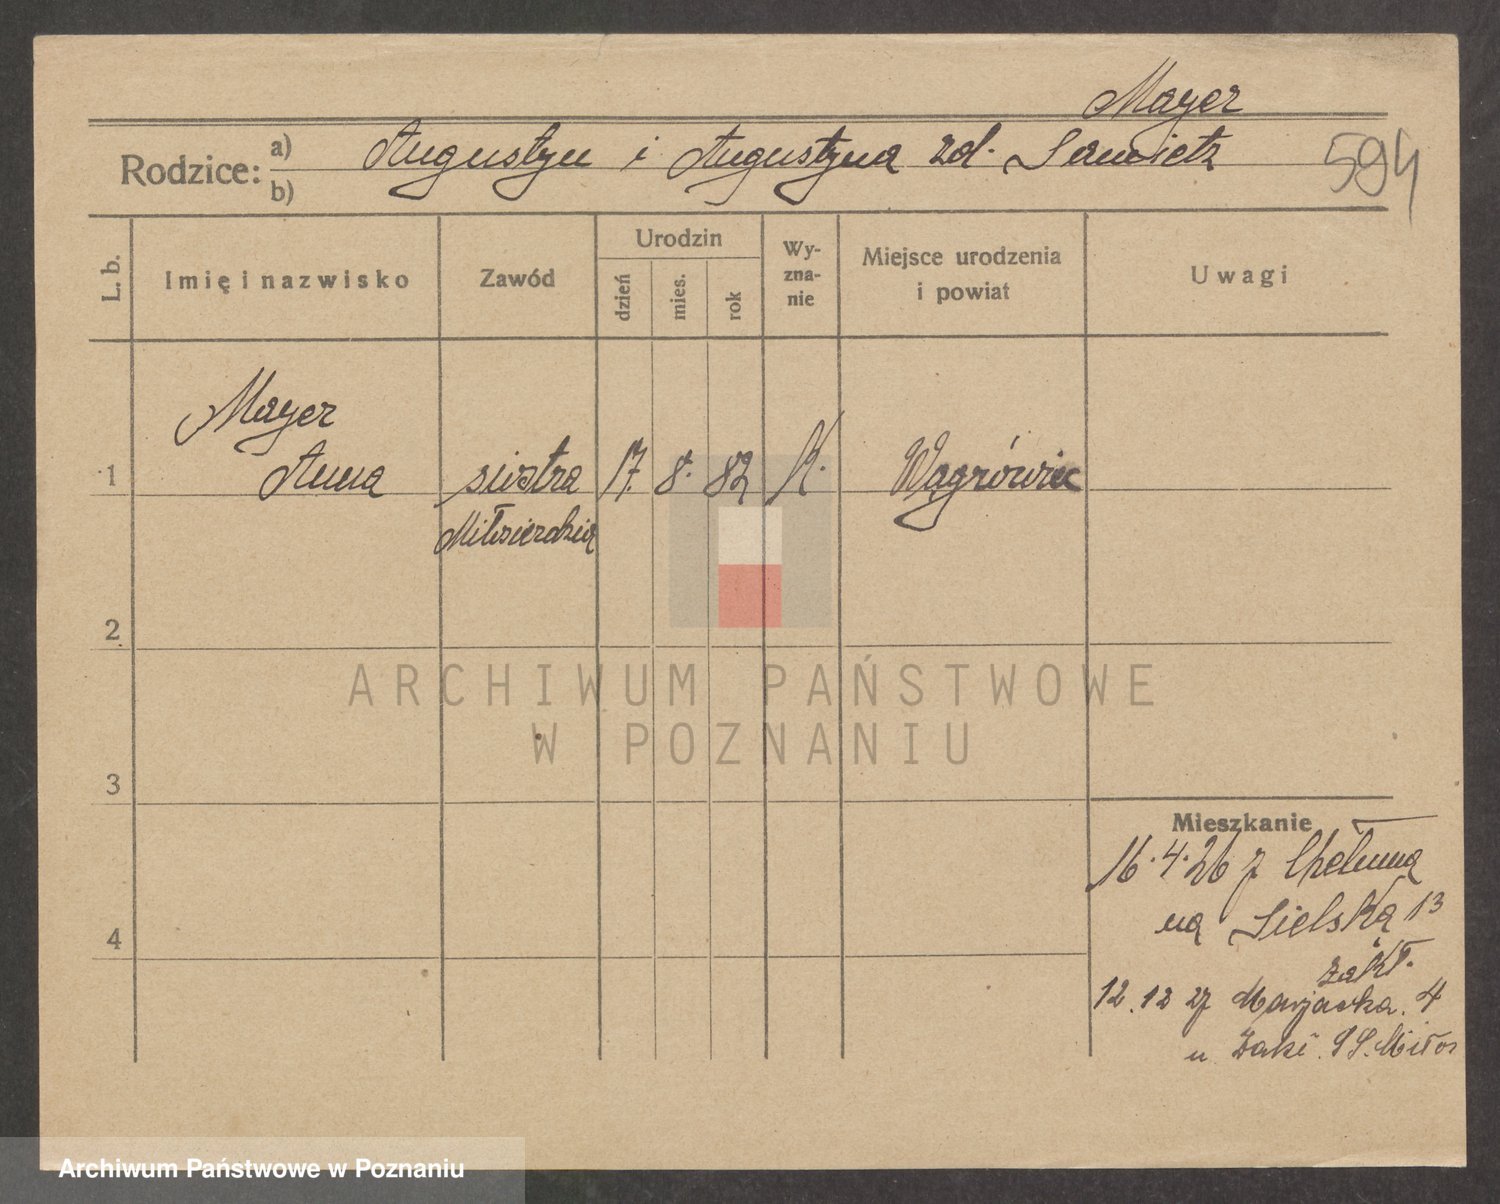 Mayer
Rodzice: a) Augustyn i Augustyna zd.
b)
594
L. b.
Imię i nazwisko
Zawód
Urodzin
dzień
mies.
rok
Wy-
zna-
nie
Miejsce urodzenia
i powiat
Uwagi
Mayer
1 Anna siostra 17. 8. 82 K. Wągrówiec
Miłosierdzia
2
3
4
Mieszkanie
16.4.26 z Chełmna
na Sielską 13
zakł.
12.12 27 4
u SS. Miłos
ARCHIWUM PAŃSTWOWE
W POZNANIU
Archiwum Państwowe w Poznaniu